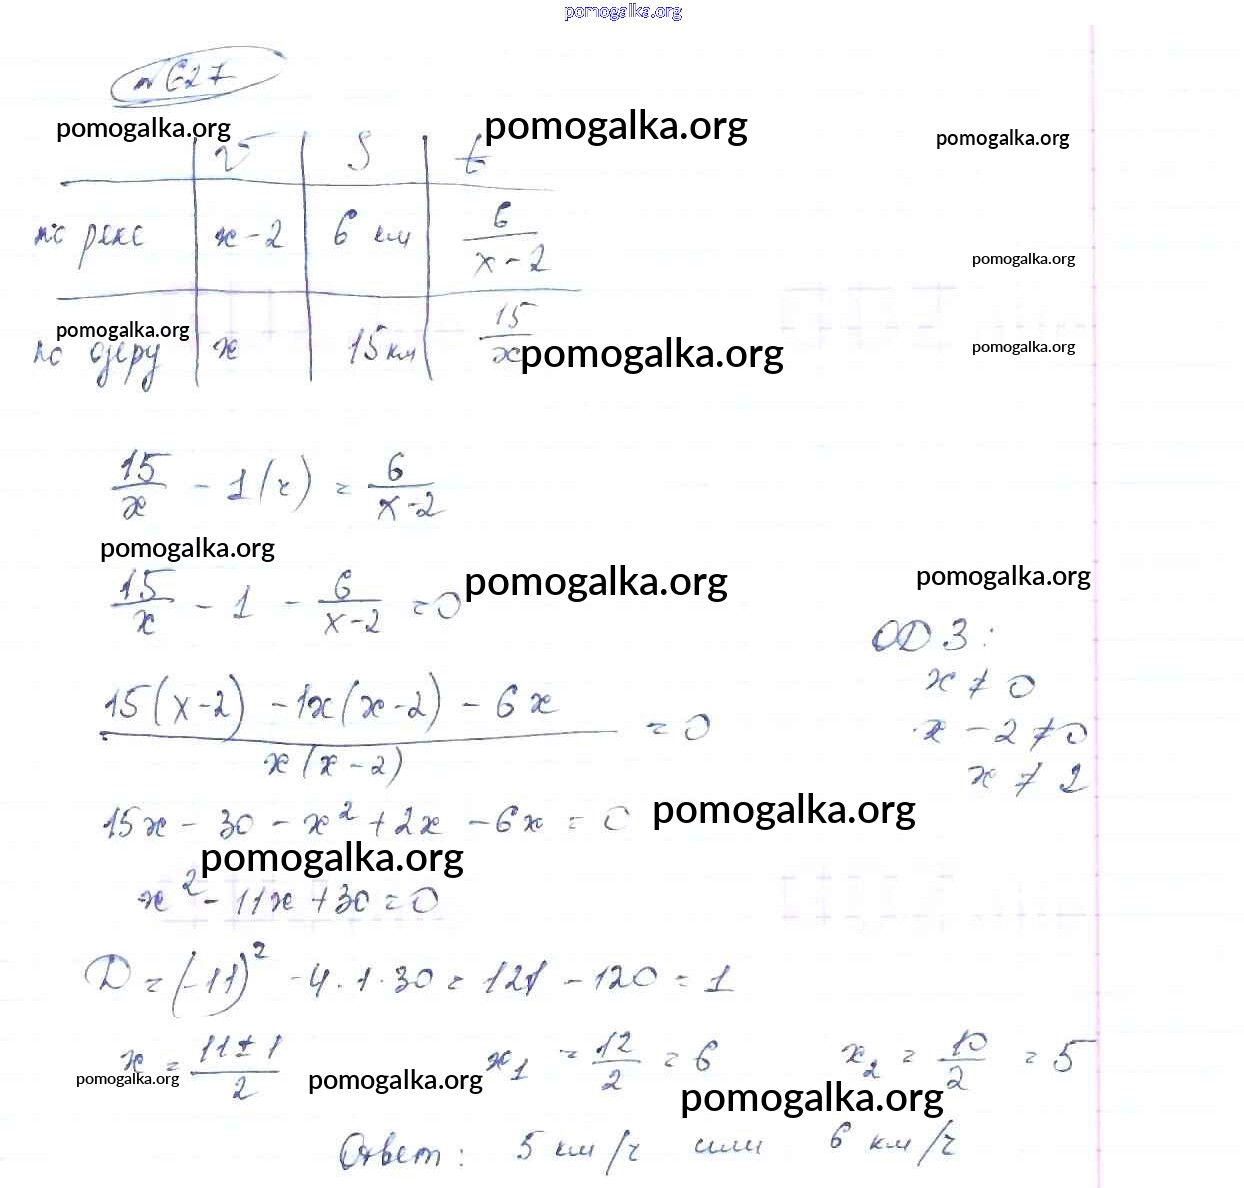 pomogalka.org
№ 627
pomogalka.org pomogalka.org pomogalka.org
v S t
по реке x-2 6 км 6/(x-2)
pomogalka.org
pomogalka.org
по озеру x 15 км 15/x
pomogalka.org pomogalka.org
15/x - 1(ч) = 6/(x-2)
pomogalka.org
15/x - 1 - 6/(x-2) = 0
pomogalka.org pomogalka.org
ОДЗ:
x ≠ 0
x - 2 ≠ 0
x ≠ 2
(15(x-2) - 1x(x-2) - 6x)/(x(x-2)) = 0
15x - 30 - x² + 2x - 6x = 0
pomogalka.org
pomogalka.org
x² - 11x + 30 = 0
D = (-11)² - 4·1·30 = 121 - 120 = 1
x = (11±1)/2 x₁ = 12/2 = 6 x₂ = 10/2 = 5
pomogalka.org pomogalka.org pomogalka.org
Ответ: 5 км/ч или 6 км/ч